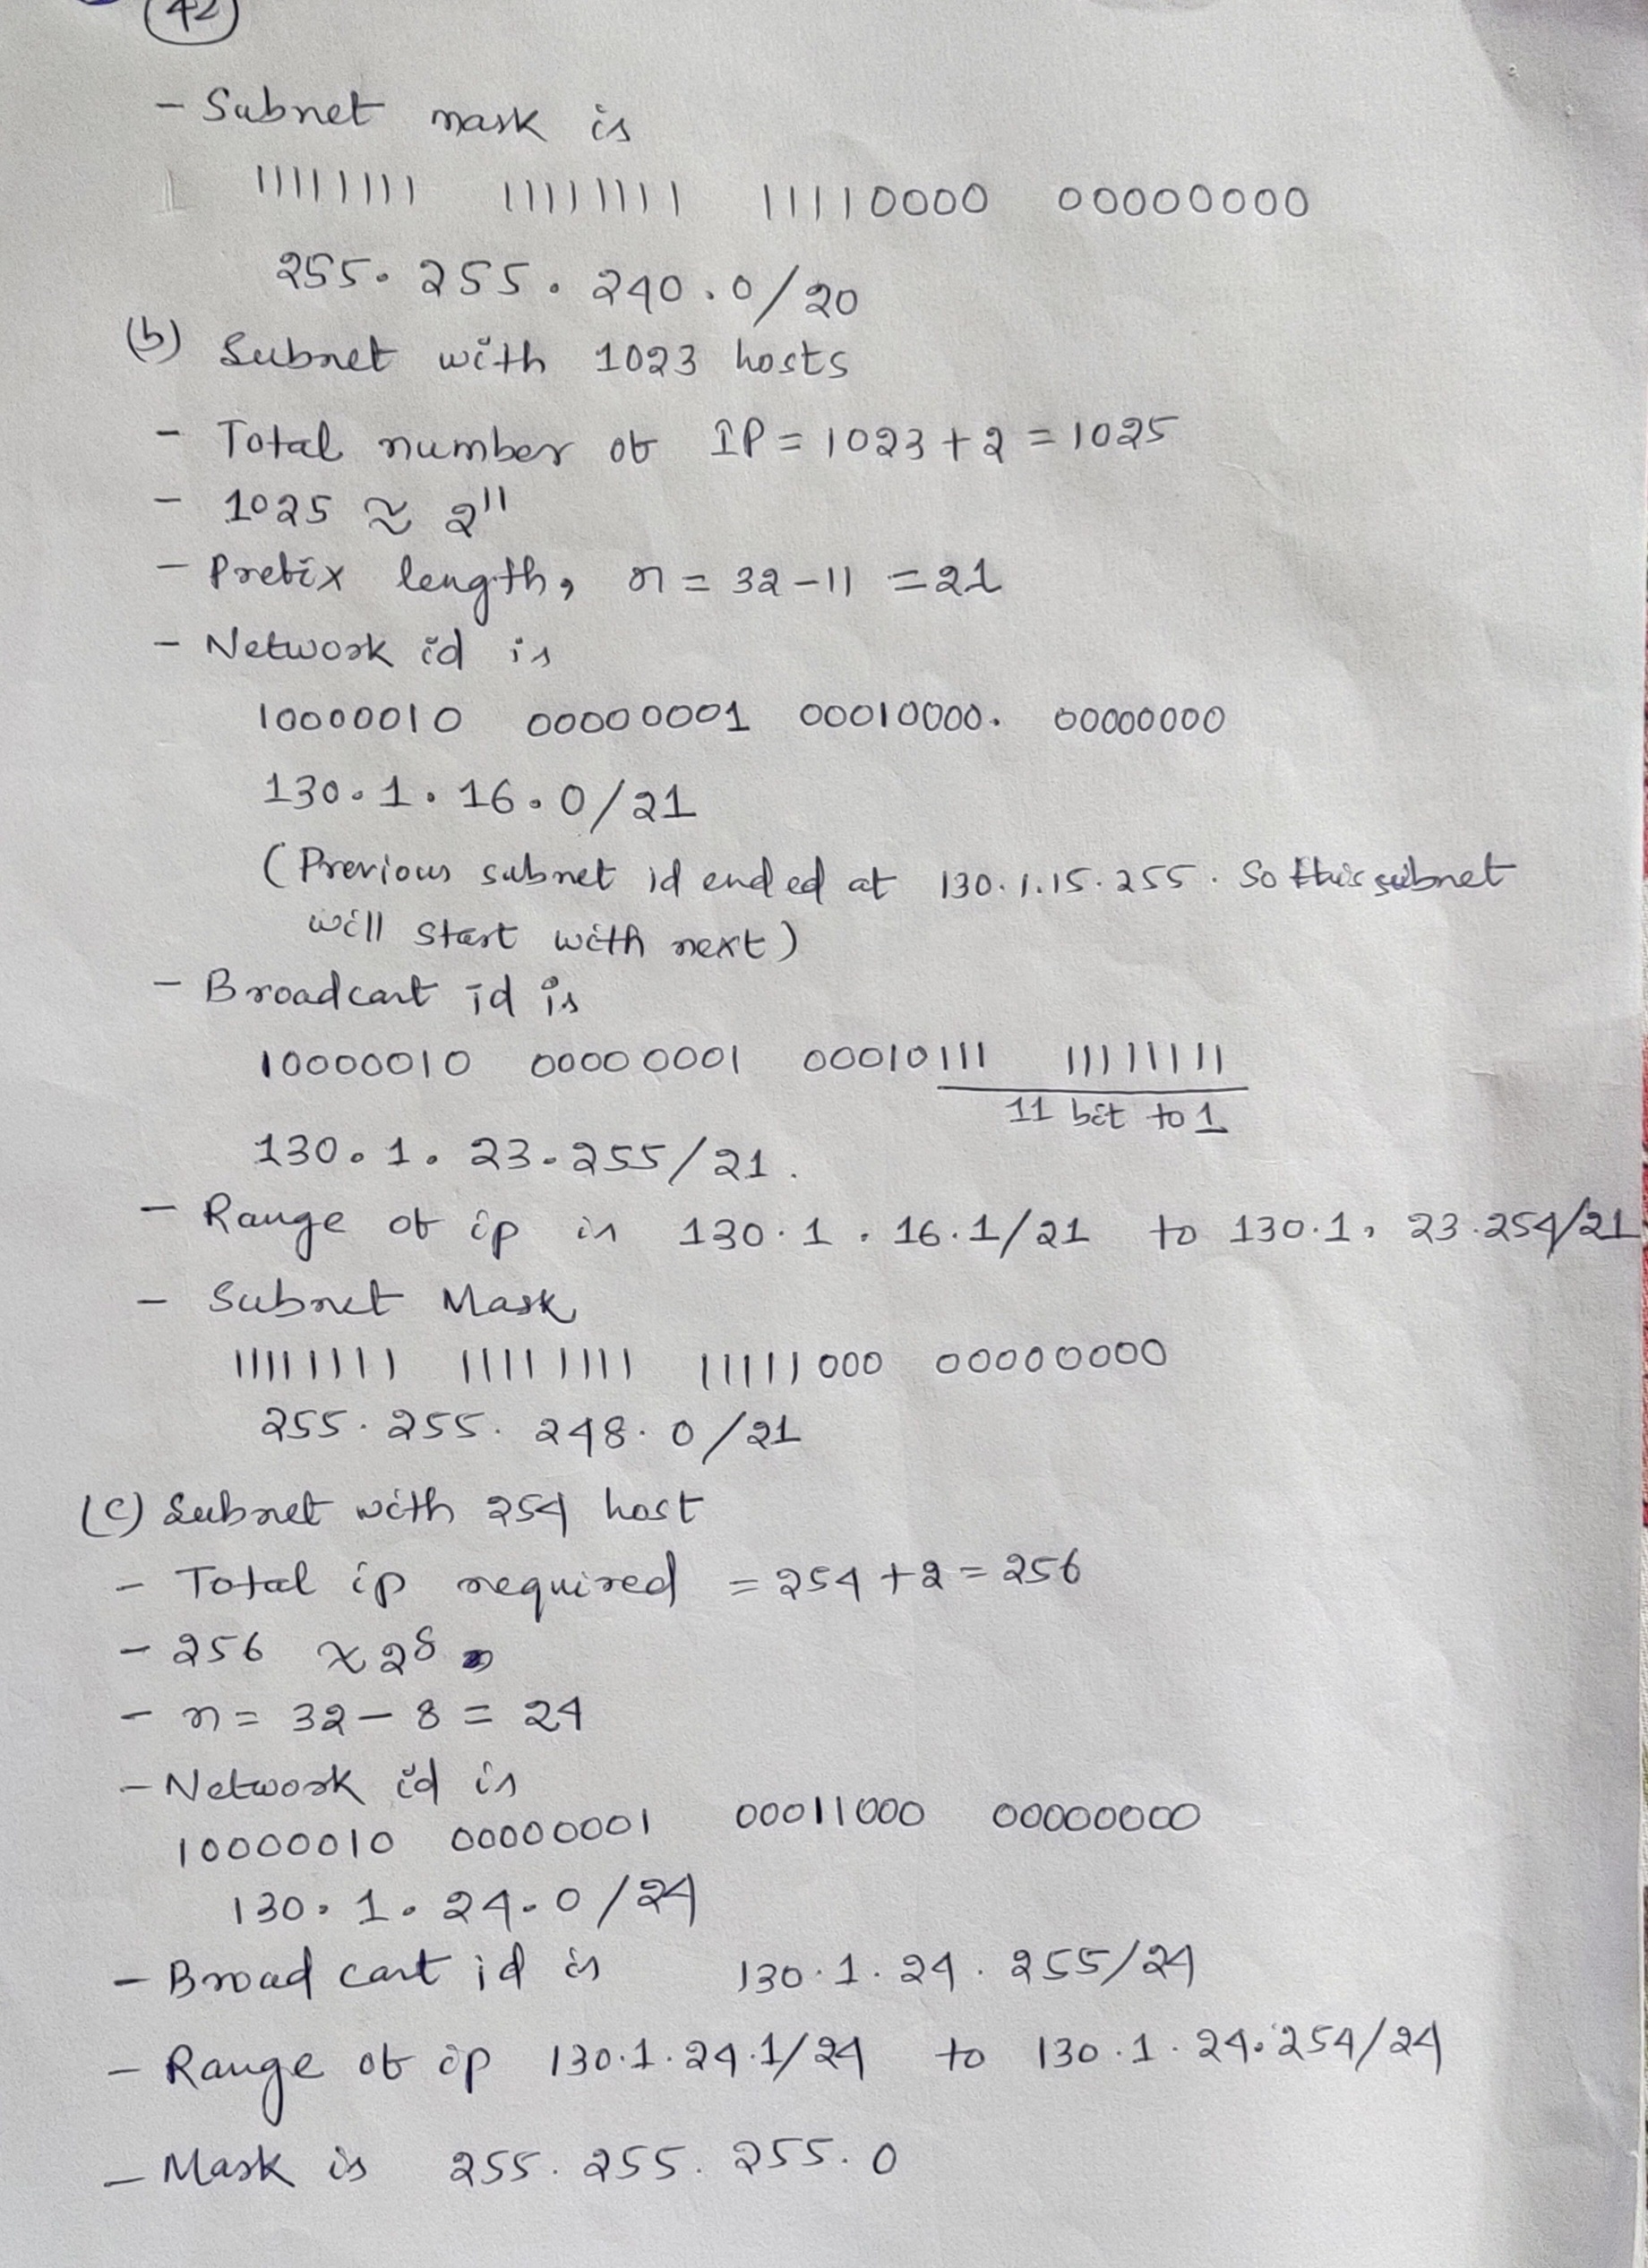 42
- Subnet mask is
11111111 11111111 11110000 00000000
255.255.240.0/20
(b) Subnet with 1023 hosts
- Total number of IP = 1023 + 2 = 1025
- 1025 ≈ 2^11
- Prefix length, n = 32 - 11 = 21
- Network id is
10000010 00000001 00010000. 00000000
130.1.16.0/21
(Previous subnet id ended at 130.1.15.255. So this subnet
will start with next)
- Broadcast id is
10000010 00000001 00010111 11111111
11 bit to 1
130.1.23.255/21.
- Range of ip is 130.1.16.1/21 to 130.1.23.254/21
- Subnet Mask
11111111 11111111 11111000 00000000
255.255.248.0/21
(c) Subnet with 254 host
- Total ip required = 254 + 2 = 256
- 256 ≈ 2^8
- n = 32 - 8 = 24
- Network id is
10000010 00000001 00011000 00000000
130.1.24.0/24
- Broad cast id is 130.1.24.255/24
- Range of ip 130.1.24.1/24 to 130.1.24.254/24
- Mask is 255.255.255.0